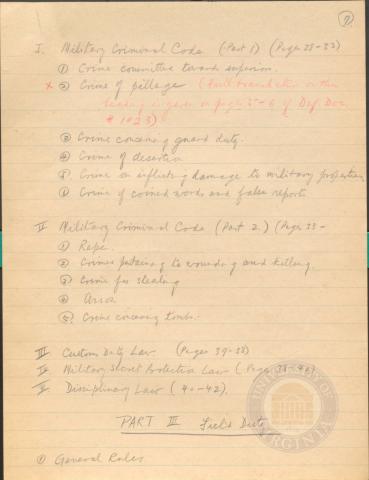 7)
I. Military Criminal Code (Part 1) (Pages 28-33)
① Crime committee towards superior.
x ② Crime of pillage (Full translation on this
heading is given on pages 5-6 of Def. Doc.
# 1023)
③ Crime concerning guard duty.
④ Crime of desertion
⑤ Crime on inflicting damage to military properties
⑥ Crime of coined words and false reports
II Military Criminal Code (Part 2) (Pages 33-
① Rape.
② Crimes pertaining to wounding and killing.
③ Crime for stealing
④ Arson
⑤ Crime concerning tombs.
III Custom Duty Law (Pages
Military Secret Protection Law (Pages
V. Disciplinary Law (40-42).
PART III Field Duty
① General Rules
UNIVERSITY OF VIRGINIA